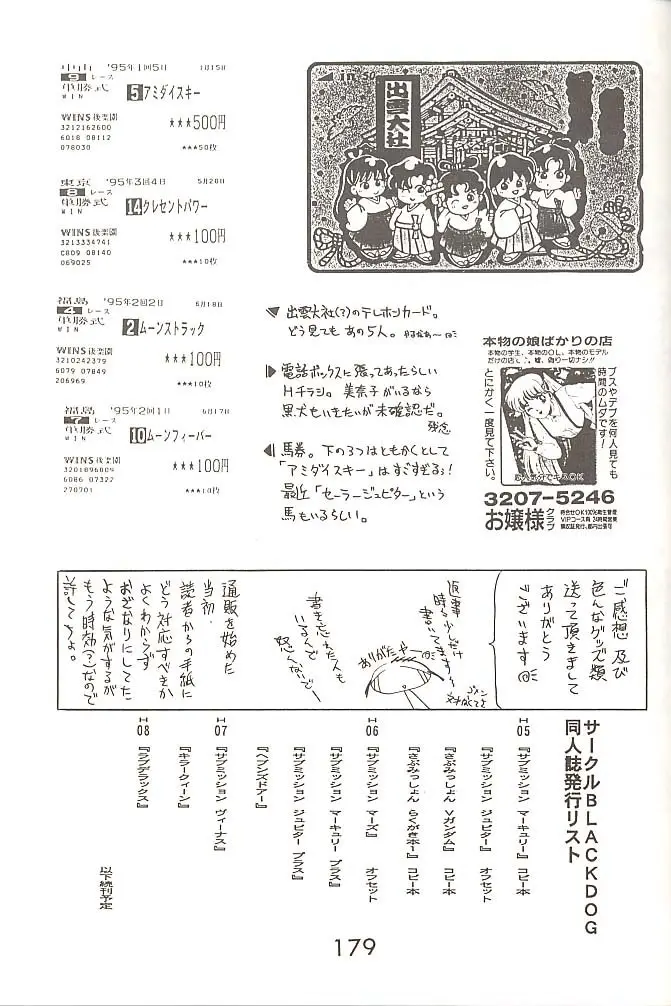 中山 '95年1回5日 1月15日
9 レース
単勝式
WIN
5 アミダイスキー
WINS後楽園
3212162600
6018 08112
078030
★★★500円
★★★50枚
東京 '95年3回4日 5月28日
8 レース
単勝式
WIN
14 クレセントパワー
WINS後楽園
3213334741
6809 08140
069025
★★★100円
★★★10枚
福島 '95年2回2日 6月18日
4 レース
単勝式
WIN
2 ムーンストラック
WINS後楽園
3210242379
6079 07849
206969
★★★100円
★★★10枚
福島 '95年2回1日 6月17日
7 レース
単勝式
WIN
10 ムーンフィーバー
WINS後楽園
3201896804
6086 07322
270701
★★★100円
★★★10枚
50
出雲大社
出雲大社(?)のテレホンカード。
どう見てもあの5人。
電話ボックスに張ってあったらしい
Hチラシ。美奈子がいるなら
黒犬もいきたいが未確認だ。
残念
馬券。下の3つはともかくとして
「アミダイスキー」はすごすぎる!
最近「セーラージュピター」という
馬もいるらしい。
本物の娘ばかりの店
本物の学生、本物のOL、本物のモデル
だけの店です。嘘、偽り一切ナシ!!
ブスやデブを何人見ても
時間のムダです!
とにかく一度見て下さい。
恋人気分でキスOK
3207-5246
お嬢様クラブ
待合せOK100%衛生管理
VIPコース有 24時間営業
領収証発行、都内出張可
ご感想 及び
色んなグッズ類
送って頂きまして
ありがとう
ございます
返事
時々少しだけ
書いてますす
ありがたや
書き忘れた人も
いるんで
怒んないでー
通販を始めた
当初.
読者からの手紙に
どう対応すべきか
よくわからず
おざなりにしてた
ような気がするが
もう時効(?)なので
許してちょ。
サークルBLACKDOG
同人誌発行リスト
H05 『サブミッション マーキュリー』 コピー本
『サブミッション ジュピター』 オフセット
『さぶみっしょん Vガンダム』 コピー本
『さぶみっしょん らくがき本ー』 コピー本
H06 『サブミッション マーズ』 オフセット
『サブミッション マーキュリー プラス』
『サブミッション ジュピター プラス』
『ヘブンズドアー』
H07 『サブミッション ヴィーナス』
『キラークィーン』
H08 『ラブデラックス』
以下続刊予定
179